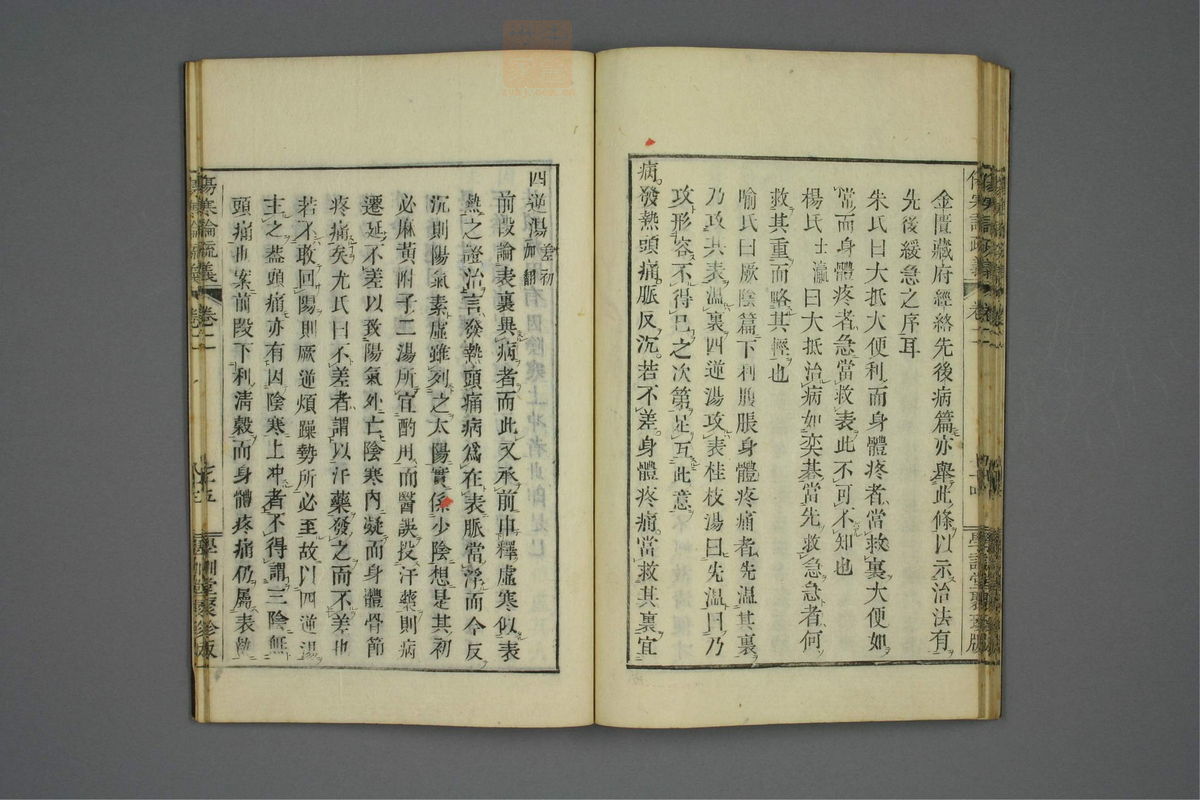 金匱藏府經絡先後病篇亦舉此條以示治法有
先後緩急之序耳
朱氏曰大抵大便利而身體疼者當救裏大便如
常而身體疼者急當救表此不可不知也
楊氏士瀛曰大抵治病如奕碁當先救急急者何
救其重而略其輕也
喻氏曰厥陰篇下利腹脹身體疼痛者先溫其裏
乃攻其表溫裏四逆湯攻表桂枝湯曰先溫曰乃
攻形容不得已之次第足互此意
病發熱頭痛脈反沉若不差身體疼痛當救其裏宜
四逆湯差初加翻
前段論表裏與病者而此又承前申釋虛寒似表
熱之證治言發熱頭痛病爲在表脈當浮而今反
沉則陽氣素虛雖列之太陽實係少陰想是其初
必麻黃附子二湯所宜酌用而醫誤投汗藥則病
遷延不差以致陽氣外亡陰寒內凝而身體骨節
疼痛矣尤氏曰不差者謂以汗藥發之而不差也
若不敢回陽則厥逆煩躁勢所必至故以四逆湯
主之蓋頭痛亦有因陰寒上冲者不得謂三陰無
頭痛也案前段下利淸穀而身體疼痛仍屬表
傷寒論疏義 卷二
學訓堂聚珍版